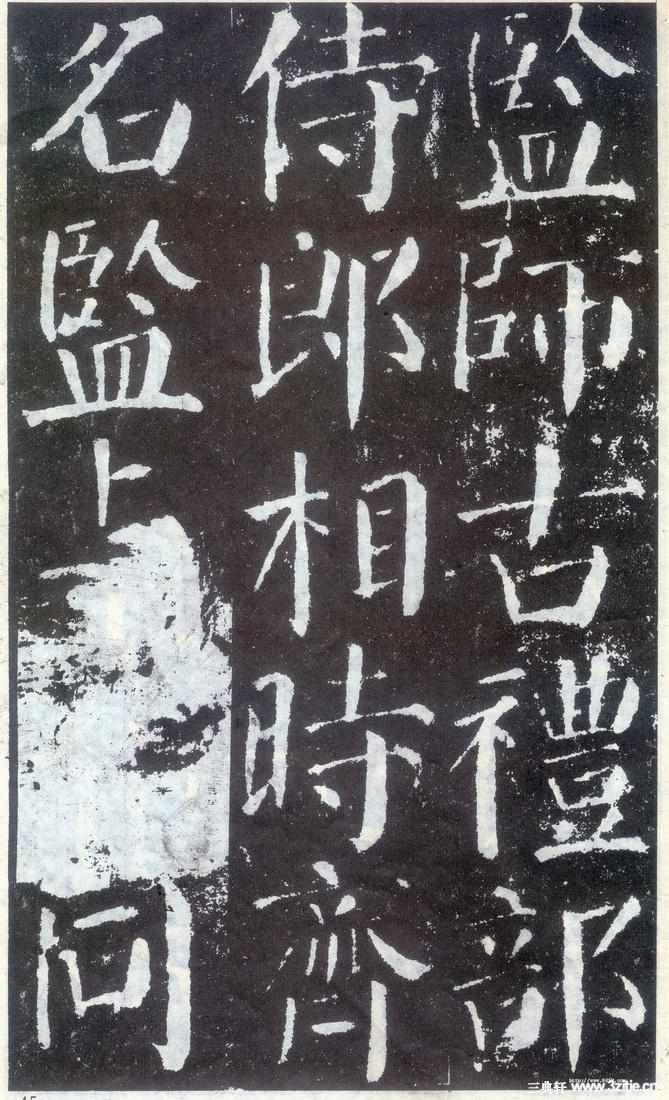 監師古禮部
侍郎相時齊
名監同
三典轩 www.3zitie.cn